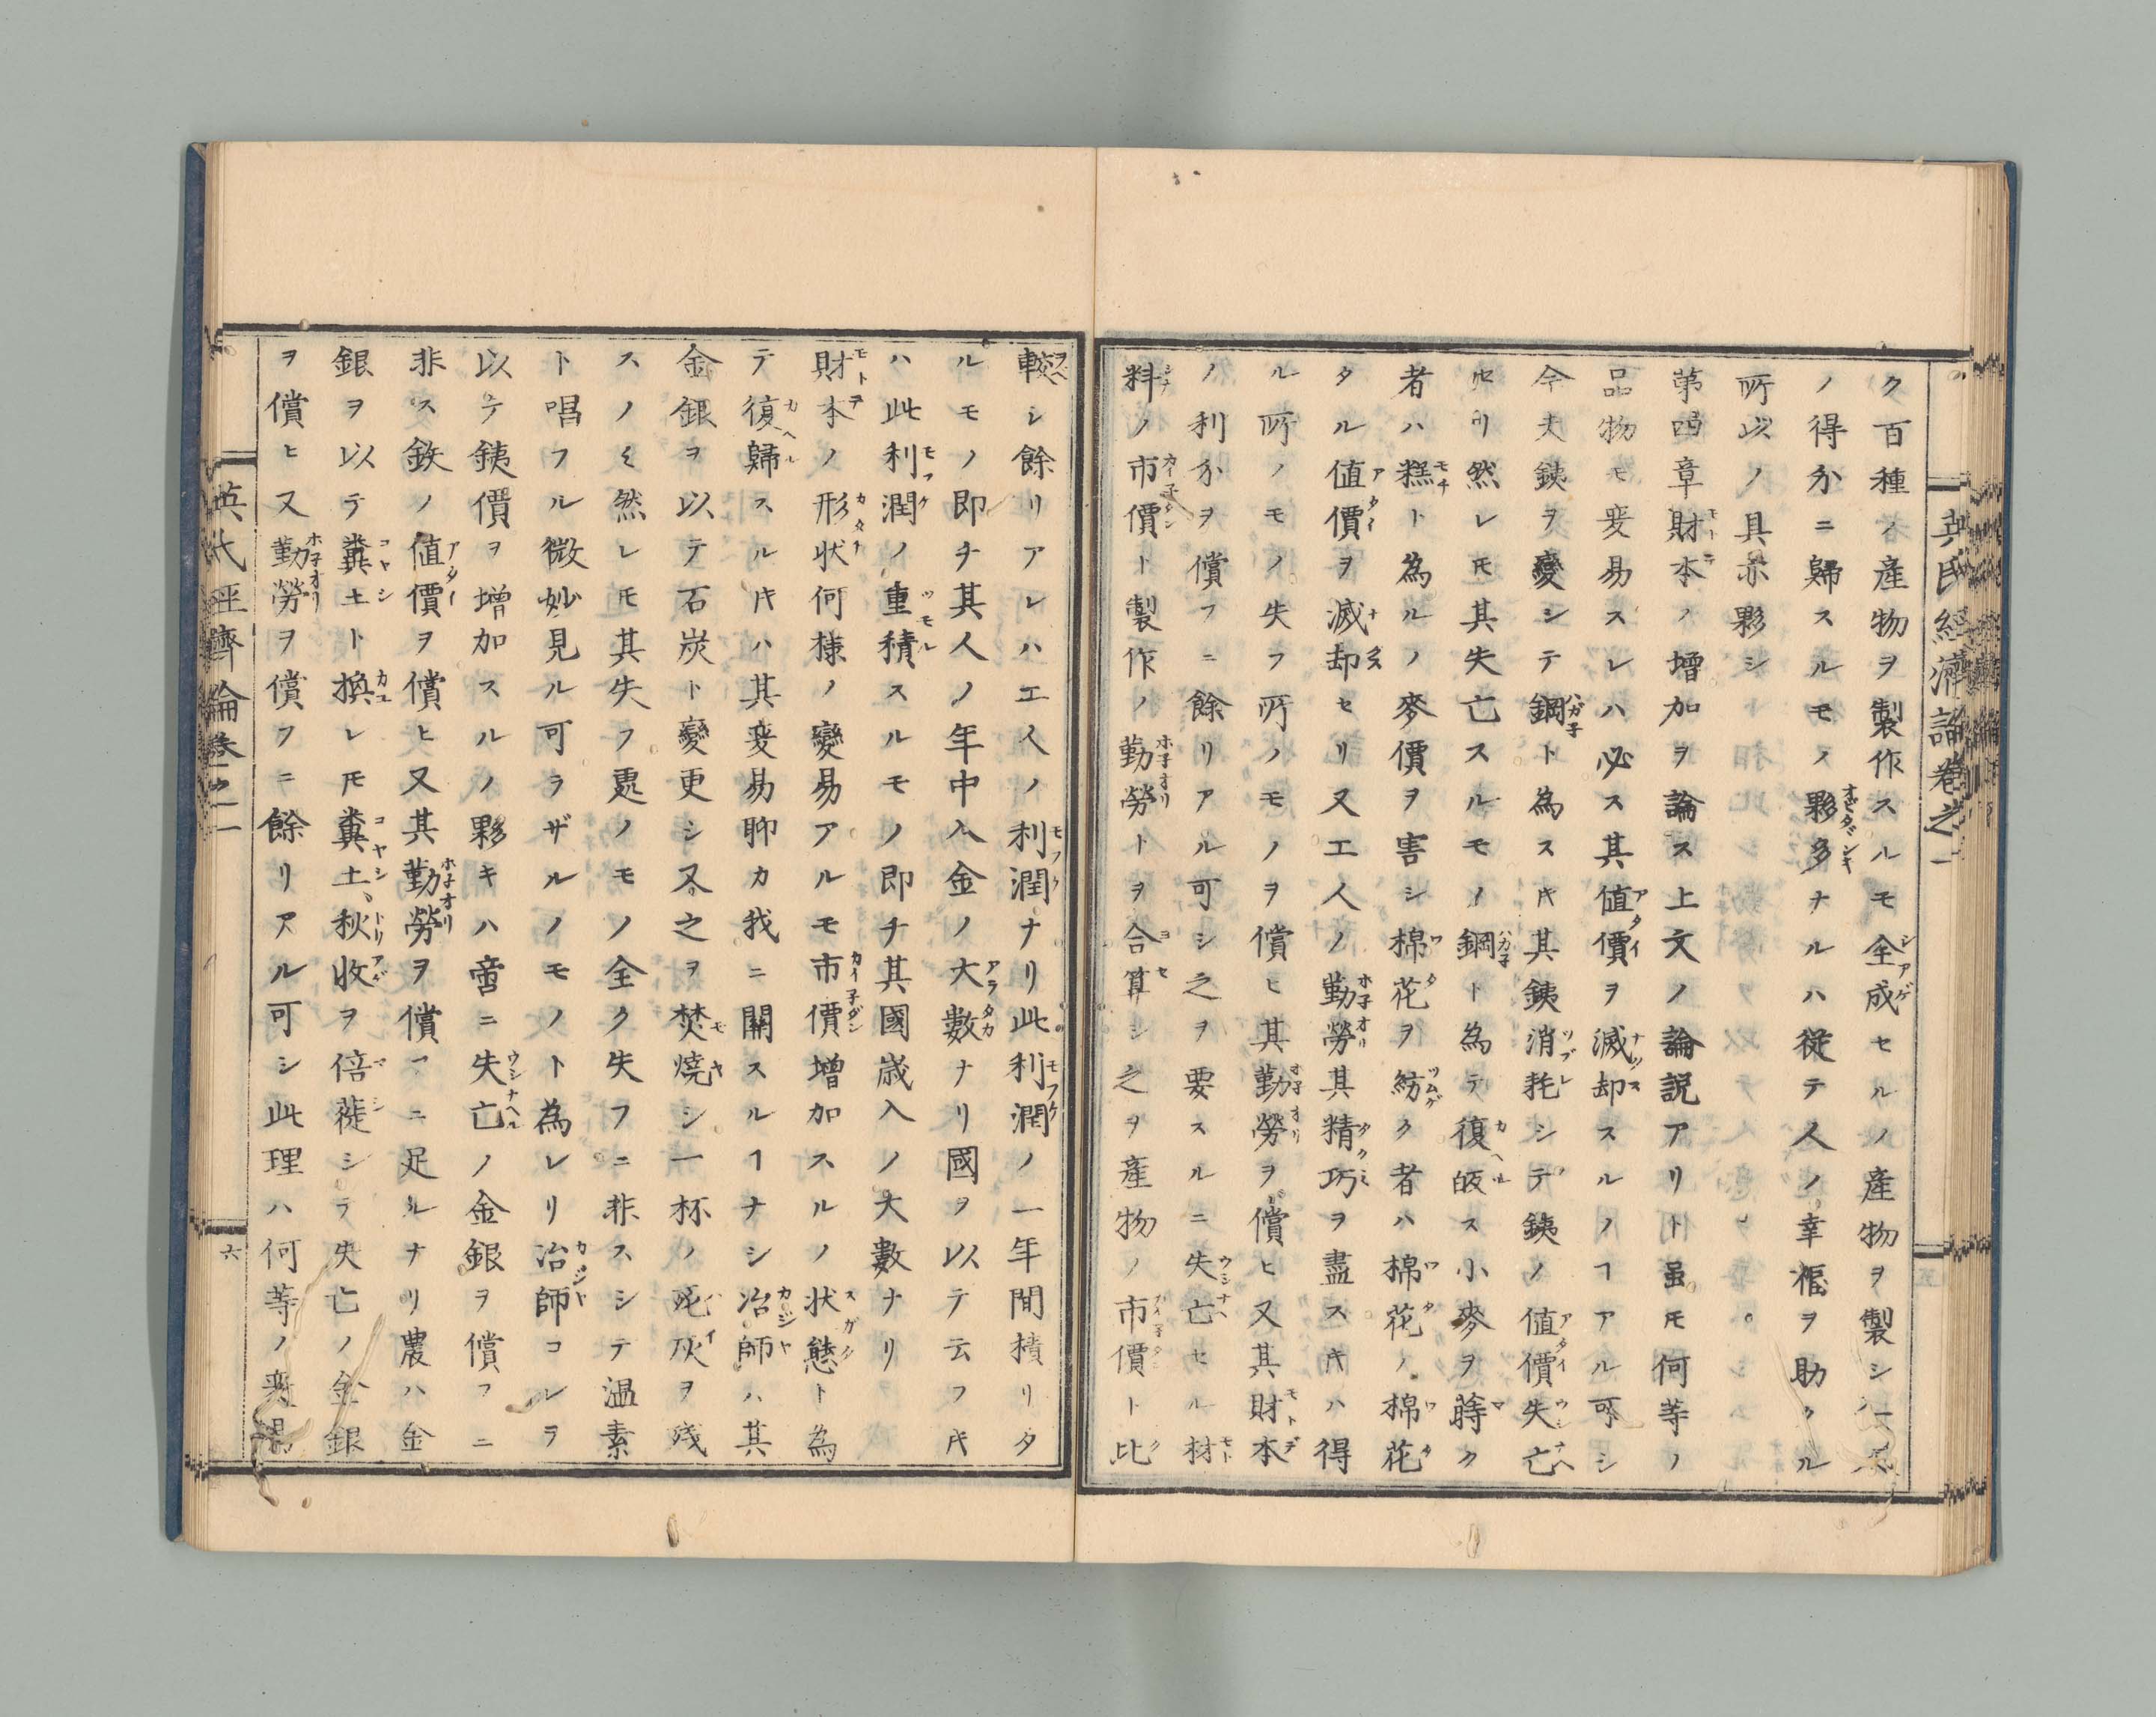 英氏經濟論卷之一
ク百種ノ產物ヲ製作スルモ全成セルノ產物ヲ製シ
ノ得分ニ歸スルモノ夥多ナルハ從テ人ノ幸福ヲ助クル
所以ノ具亦夥シ
第四章財本ノ增加ヲ論ス上文ノ論説アリト虽モ何等ノ
品物モ変易スレハ必ス其値價ヲ滅却スルノヿアル可シ
今夫鉄ヲ變シテ鋼ト為スキ其鉄消耗シテ鉄ノ値價失亡
セリ然レモ其失亡スルモノ鋼ト為テ復皈ス小麥ヲ蒔ク
者ハ糕ト為ルノ麥價ヲ害シ棉花ヲ紡ク者ハ棉花ノ棉花
タル値價ヲ滅却セリ又工人ノ勤勞其精巧ヲ盡スキハ得
ル所ノモノ失フ所ノモノヲ償ヒ其勤勞ヲ償ヒ又其財本
ノ利分ヲ償フニ餘リアル可シ之ヲ要スルニ失亡セル材
料ノ市價ト製作ノ勤勞トヲ合算シ之ヲ產物ノ市價ト比
較シ餘リアレハ工人ノ利潤ナリ此利潤ノ一年間積リタ
ルモノ即チ其人ノ年中入金ノ大數ナリ國ヲ以テ云フキ
ハ此利潤ノ重積スルモノ即チ其國歳入ノ大數ナリ
財本ノ形状何様ノ變易アルモ市價增加スルノ状態ト為
テ復歸スルキハ其変易聊カ我ニ關スルヿナシ冶師ハ其
金銀ヲ以テ石炭ト變更シ又之ヲ焚燒シ一杯ノ死灰ヲ残
スノミ然レモ其失フ処ノモノ全ク失フニ非スシテ温素
ト唱フル微妙見ル可ラザルノモノト為レリ冶師コレヲ
以テ鉄價ヲ增加スルノ夥キハ啻ニ失亡ノ金銀ヲ償フニ
非ス鉄ノ値價ヲ償ヒ又其勤勞ヲ償フニ足ルナリ農ハ金
銀ヲ以テ糞土ト換レモ糞土、秋收ヲ倍蓰シテ失亡ノ金銀
ヲ償ヒ又勤勞ヲ償フニ餘リアル可シ此理ハ何等ノ
英氏經濟論卷之一
六